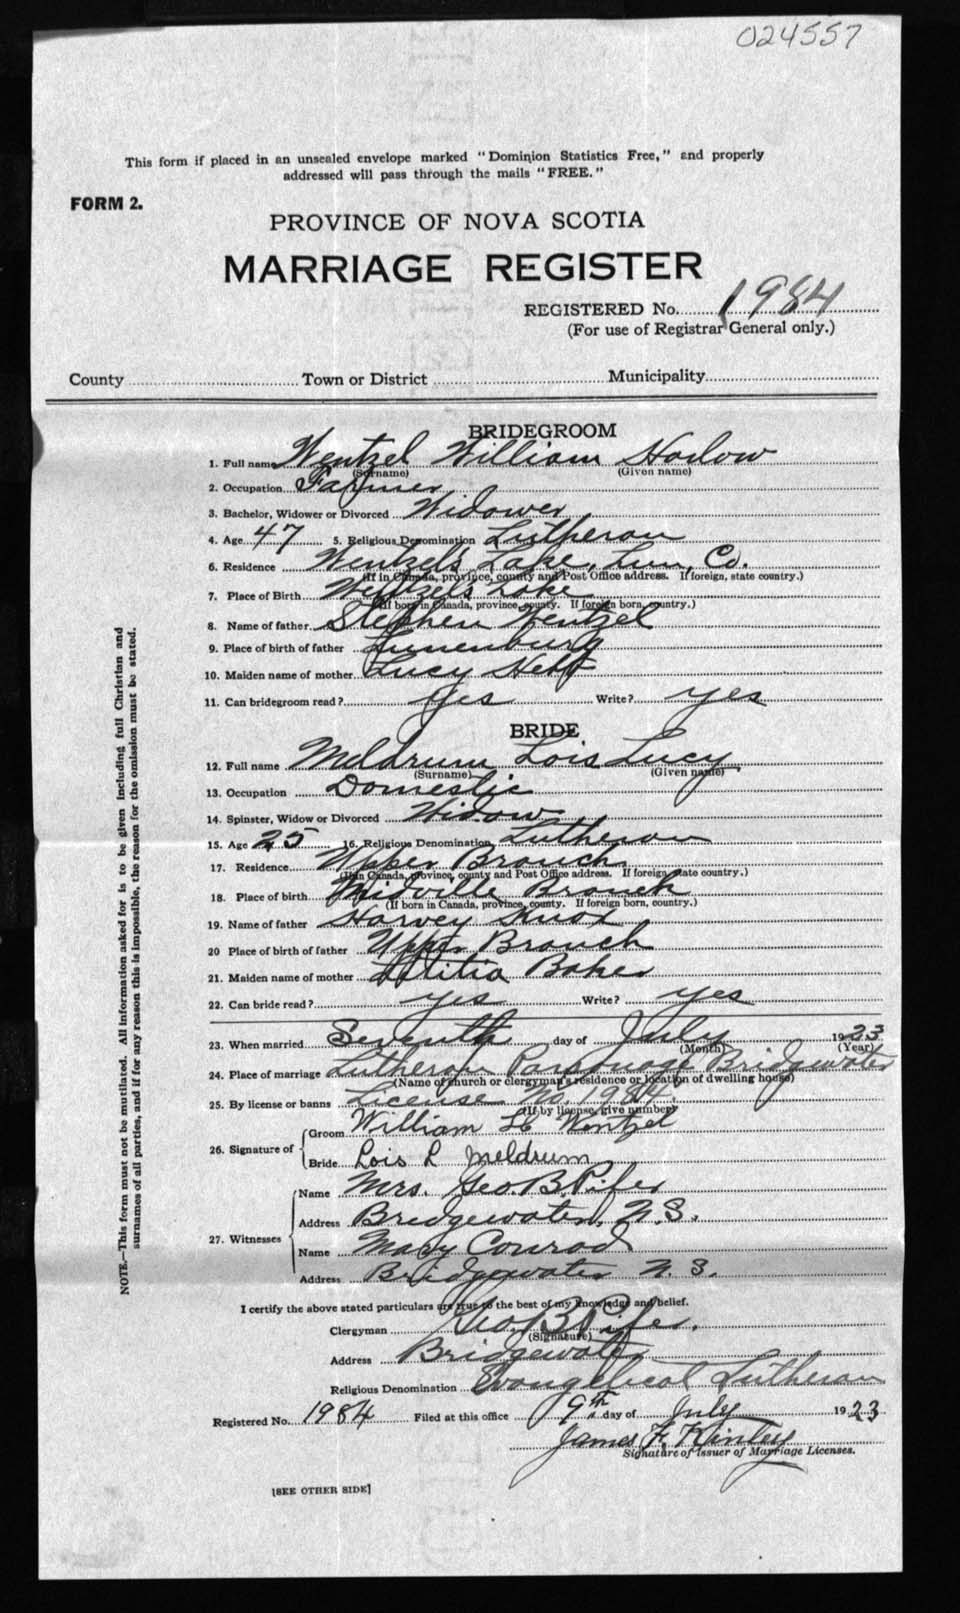 024557
This form if placed in an unsealed envelope marked "Dominion Statistics Free," and properly
addressed will pass through the mails "FREE."
FORM 2.
PROVINCE OF NOVA SCOTIA
MARRIAGE REGISTER
REGISTERED No. 1984
(For use of Registrar General only.)
County Town or District Municipality
BRIDEGROOM
1. Full name Wentzel William Harlow
(Surname) (Given name)
2. Occupation Farmer
3. Bachelor, Widower or Divorced Widower
4. Age 47 5. Religious Denomination Lutheran
6. Residence Wentzel's Lake, Lun, Co.
(If in Canada, province, county and Post Office address. If foreign, state country.)
7. Place of Birth Wentzel's Lake
(If born in Canada, province, county. If foreign born, country.)
8. Name of father Stephen Wentzel
9. Place of birth of father Lunenburg
10. Maiden name of mother Lucy Hebb
11. Can bridegroom read? yes Write? yes
BRIDE
12. Full name Meldrum Lois Lucy
(Surname) (Given name)
13. Occupation Domestic
14. Spinster, Widow or Divorced Widow
15. Age 25 16. Religious Denomination Lutheran
17. Residence Upper Branch
(If in Canada, province, county and Post Office address. If foreign, state country.)
18. Place of birth Midville Branch
(If born in Canada, province, county. If foreign born, country.)
19. Name of father Harvey Knox
20 Place of birth of father Upper Branch
21. Maiden name of mother Letitia Baker
22. Can bride read? yes Write? yes
23. When married Seventh day of July 1923
(Month) (Year)
24. Place of marriage Lutheran Parsonage Bridgewater
(Name of church or clergyman's residence or location of dwelling house)
25. By license or banns License No. 1984.
(If by license, give number)
26. Signature of
Groom William H Wentzel
Bride Lois L Meldrum
27. Witnesses
Name Mrs. Geo. B. Pifer
Address Bridgewater, N.S.
Name Mary Conrad
Address Bridgewater N.S.
I certify the above stated particulars are true to the best of my knowledge and belief.
Clergyman Geo. B. Pifer.
(Signature)
Address Bridgewater
Religious Denomination Evangelical Lutheran
Registered No. 1984 Filed at this office 9th day of July 1923
James F. Kinley
Signature of Issuer of Marriage Licenses.
[SEE OTHER SIDE]
NOTE.—This form must not be mutilated. All information asked for is to be given including full Christian and
surnames of all parties, and if for any reason this is impossible, the reason for the omission must be stated.